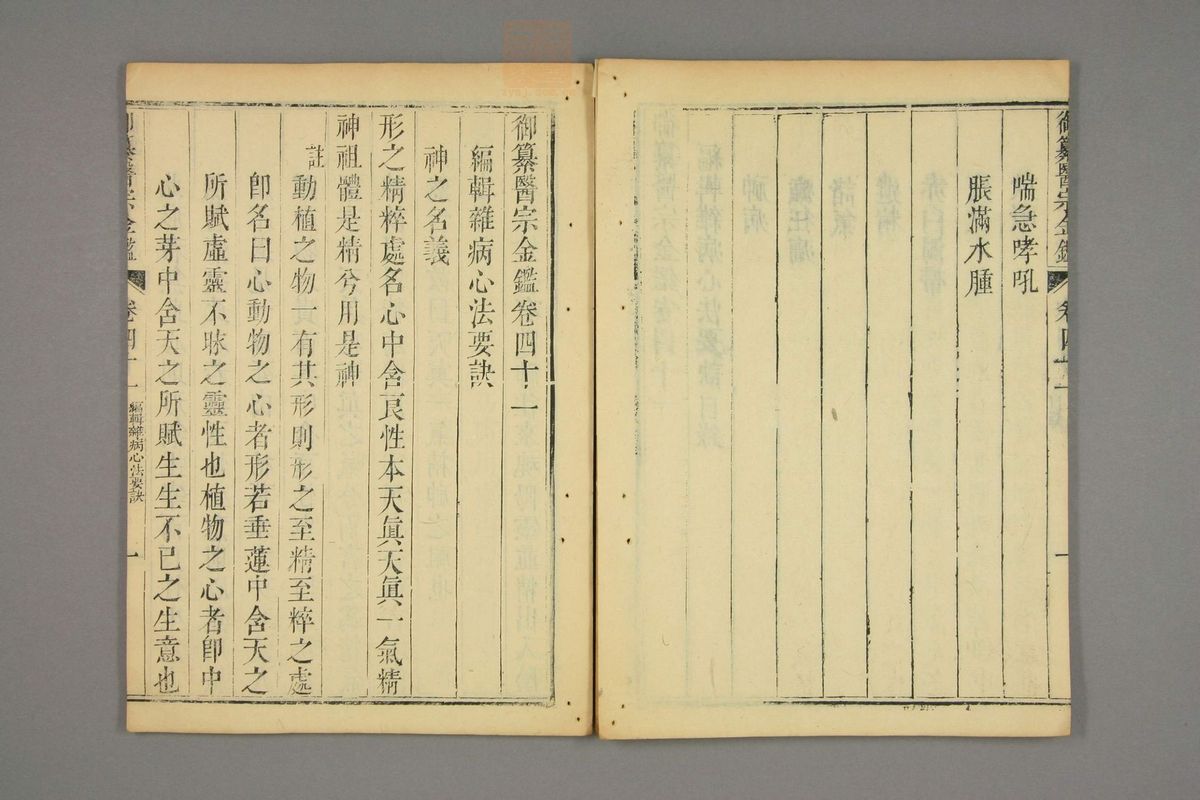 御纂醫宗金鑑
卷四十一
一
喘急哮吼
脹滿水腫
御纂醫宗金鑑卷四十一
編輯雜病心法要訣
神之名義
形之精粹處名心中含良性本天眞天眞一氣精
神祖體是精兮用是神
註動植之物有其形則形之至精至粹之處
卽名曰心動物之心者形若垂蓮中含天之
所賦虛靈不昧之靈性也植物之心者卽中
心之芽中含天之所賦生生不已之生意也
御纂醫宗金鑑
卷四十一
編輯雜病心法要訣
一